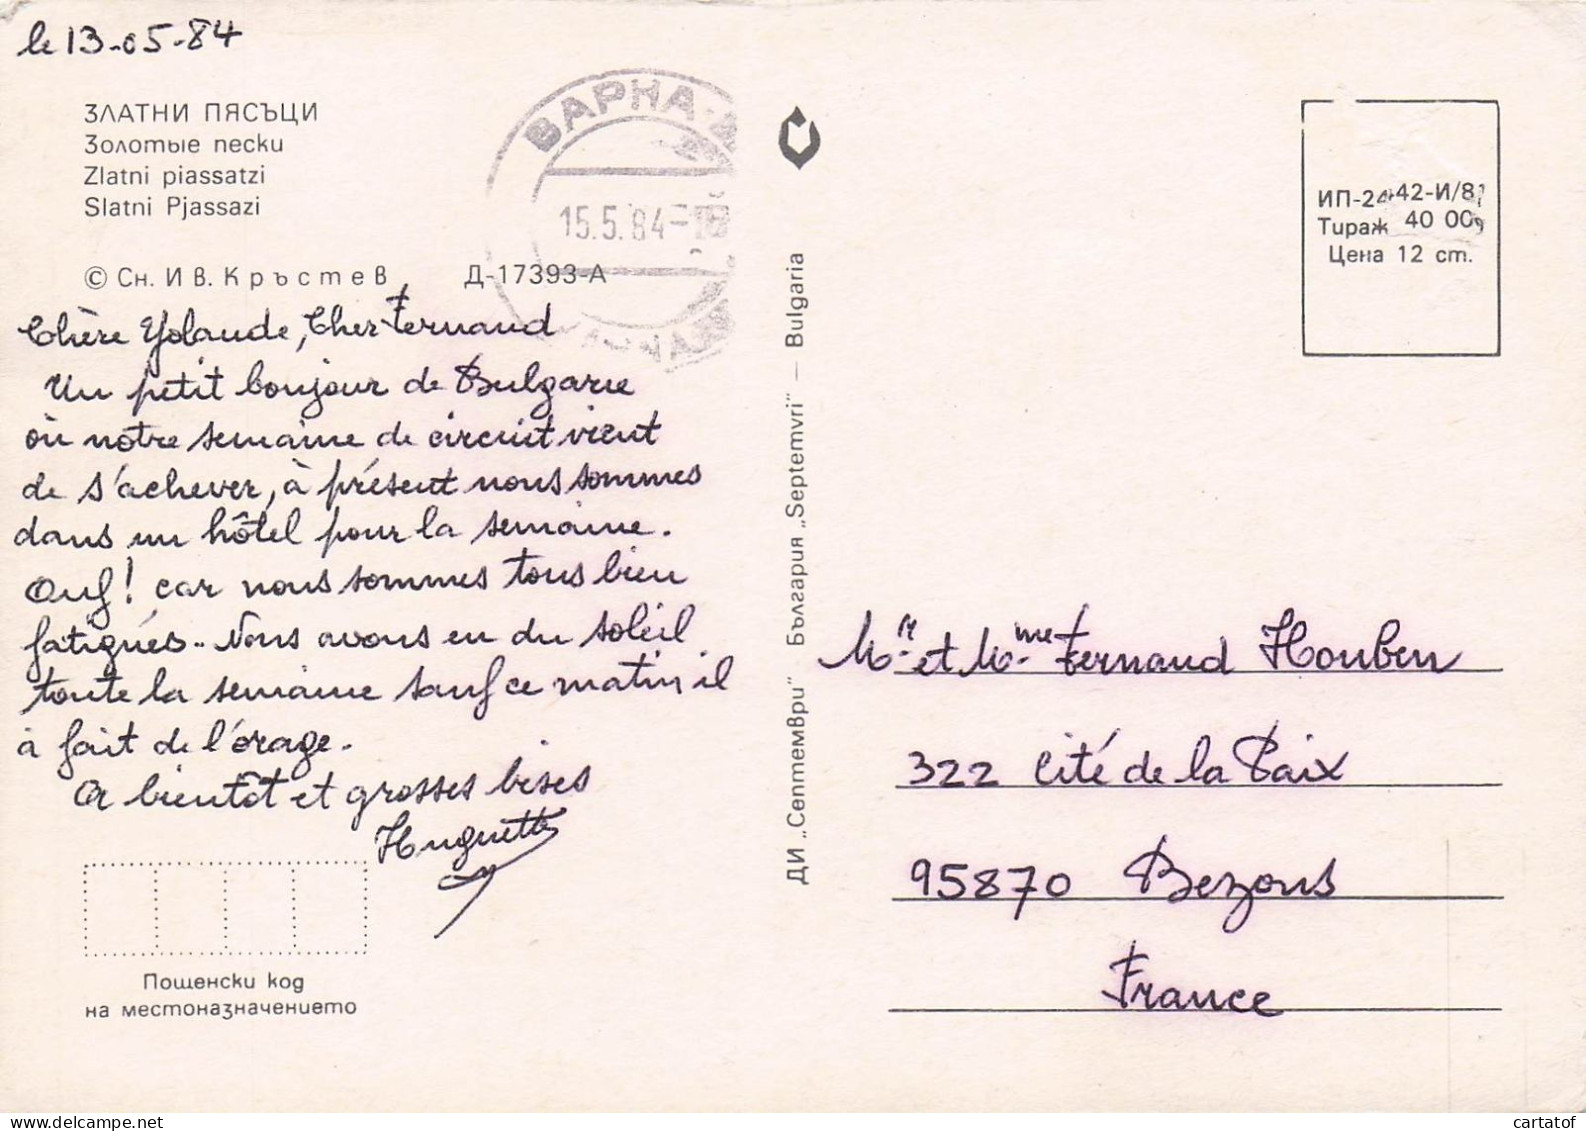 le 13-05-84
ЗЛАТНИ ПЯСЪЦИ
Золотые пески
Zlatni piassatzi
Slatni Pjassazi
© Сн. Ив. Кръстев Д-17393-А
ВАРНА
15.5.84
Chère Yolande, Cher Fernand
Un petit bonjour de Bulgarie
où notre semaine de circuit vient
de s'achever, à présent nous sommes
dans un hôtel pour la semaine.
Ouf! car nous sommes tous bien
fatigués.. Nous avons eu du soleil
toute la semaine sauf ce matin il
à fait de l'orage.
A bientôt et grosses bises
Huguette
Пощенски код
на местоназначението
ДИ „Септември" България „Septemvri" — Bulgaria
ИП-2442-И/81
Тираж 40 000
Цена 12 ст.
Mr. et Mme Fernand Houben
322 Cité de la Paix
95870 Bezons
France
cartatof